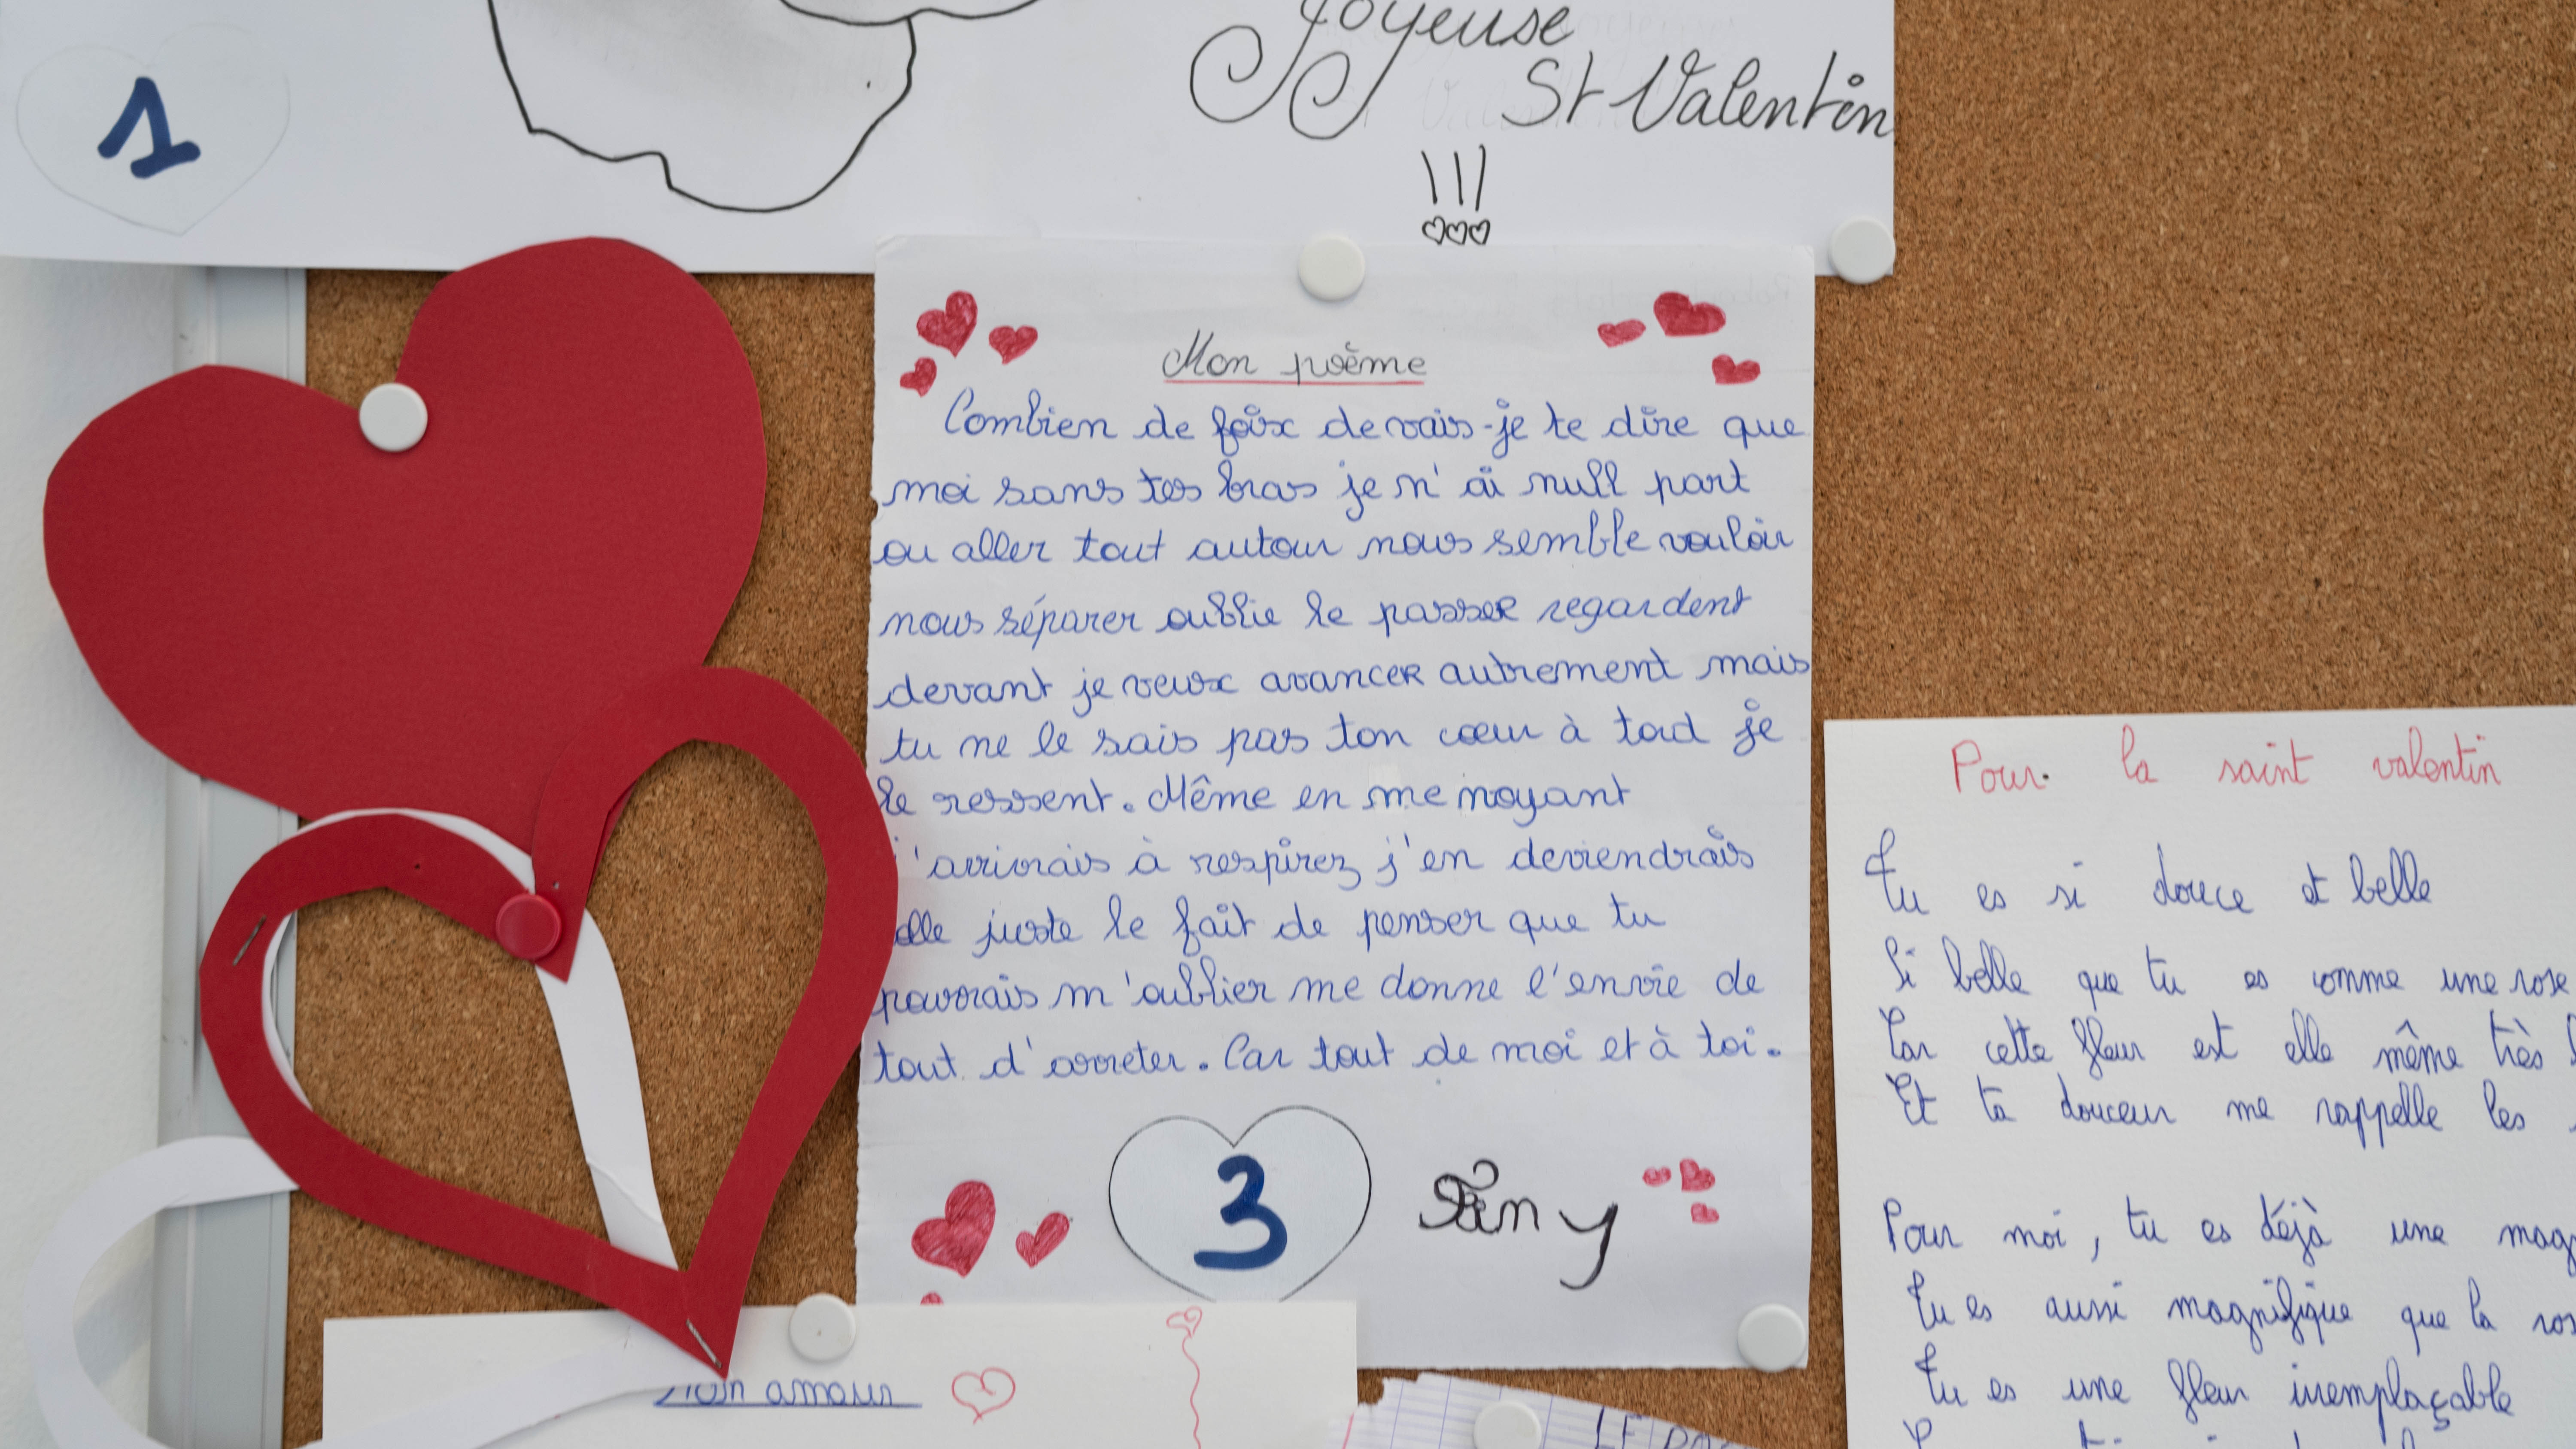 1
Joyeuse
St Valentin
!!!
Mon poème
Combien de foix devais-je te dire que
moi sans tes bras je n'ai null part
ou aller tout autour nous semble vouloir
nous séparer oublie le passer regardent
devant je veux avancer autrement mais
tu ne le sais pas ton cœur à tord je
le ressent. Même en me noyant
j'arivrais à respirez j'en deviendrais
elle juste le fait de penser que tu
pourrais m'oublier me donne l'envie de
tout d'arreter. Car tout de moi et à toi.
3
Mon amour
Pour la saint valentin
Tu es si douce et belle
Si belle que tu es comme une rose
Car cette fleur est elle même très
Et ta douceur me rappelle les
Pour moi, tu es déjà une
Tu es aussi magnifique que la
Tu es une fleur irremplaçable